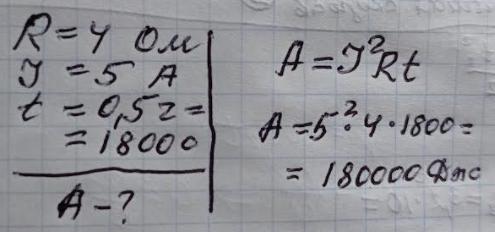 R = 4 Ом
I = 5 А
t = 0,5 г =
= 18000
А - ?
A = I²Rt
A = 5² · 4 · 1800 =
= 180000 Дж